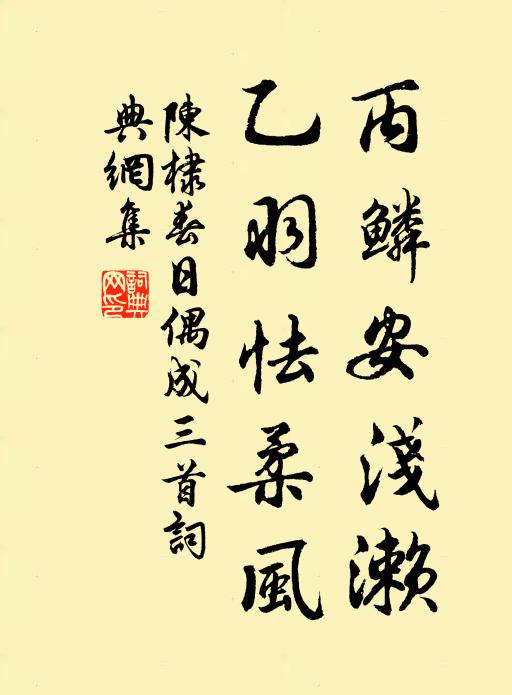 丙鱗安淺瀨
乙羽怯柔風
陳棣春日偶成三首詞
典網集
詞典網印